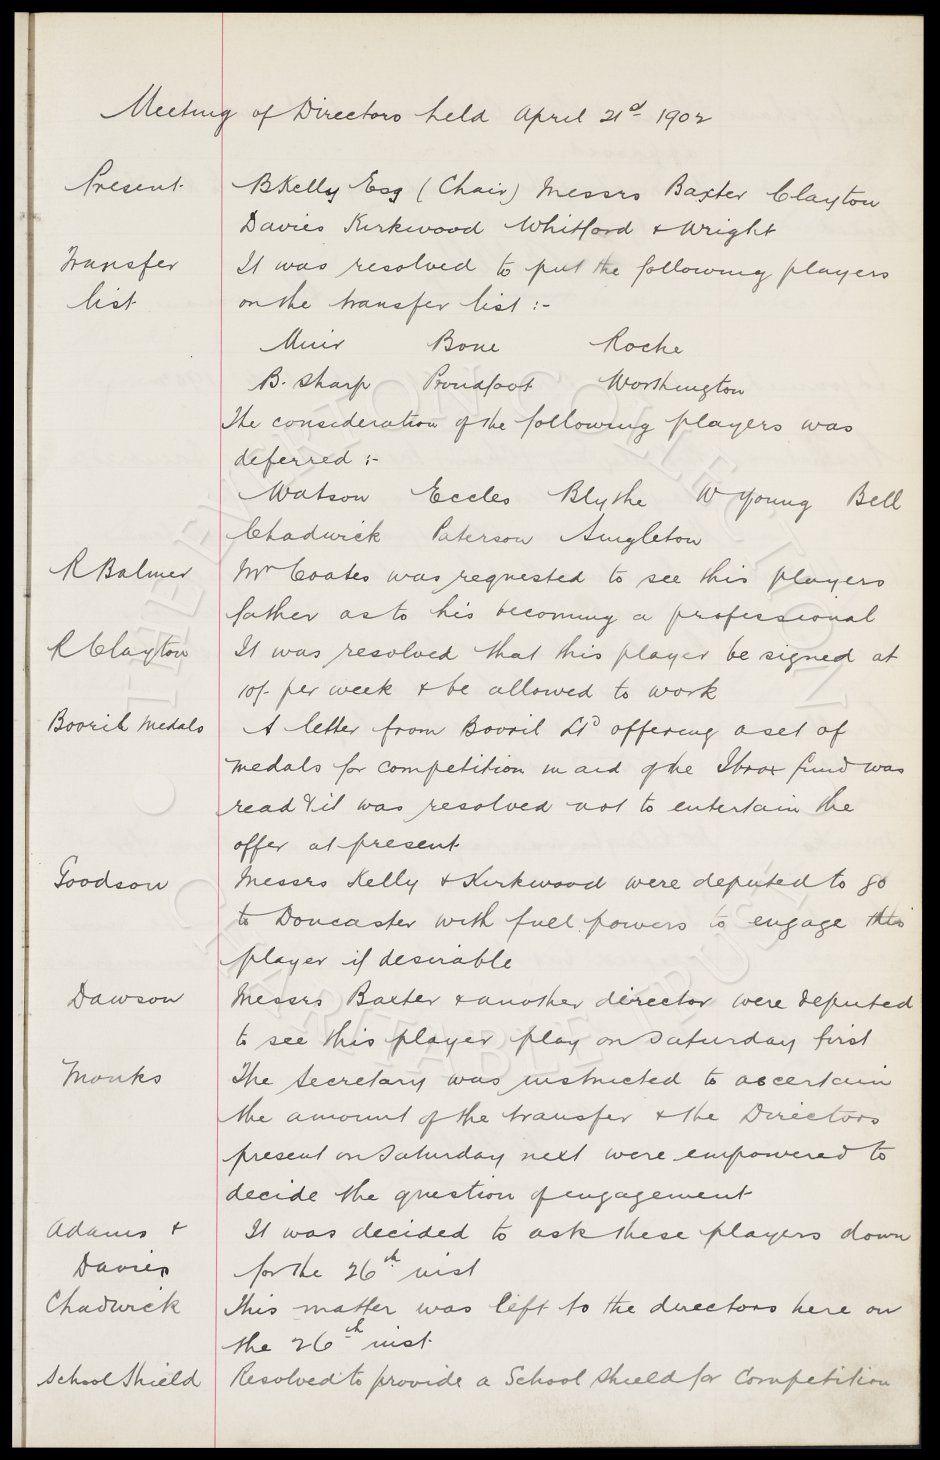 Meeting of Directors held April 21st 1902
Present BKelly Esq (Chair) Messrs Baxter Clayton
Davies Kirkwood Whitford & Wright
Transfer It was resolved to put the following players
list on the transfer list :-
Muir Bone Roche
B. Sharp Proudfoot Worthington
The consideration of the following players was
deferred :-
Watson Eccles Blythe W Young Bell
Chadwick Paterson Singleton
R Balmer Mr Coates was requested to see this players
father as to his becoming a professional
R Clayton It was resolved that this player be signed at
10/- per week & be allowed to work
Bovril Medals A letter from Bovril Ltd offering a set of
medals for competition in aid of the Ibrox fund was
read & it was resolved not to entertain the
offer at present
Goodson Messrs Kelly & Kirkwood were deputed to go
to Doncaster with full powers to engage this
player if desirable
Dawson Messrs Baxter & another director were deputed
to see this player play on Saturday first
Monks The Secretary was instructed to ascertain
the amount of the transfer & the Directors
present on Saturday next were empowered to
decide the question of engagement
Adams & It was decided to ask these players down
Davies for the 26th inst
Chadwick This matter was left to the directors here on
the 26th inst
School Shield Resolved to provide a School Shield for Competition
THE EVERTON COLLECTION
CHARITABLE TRUST